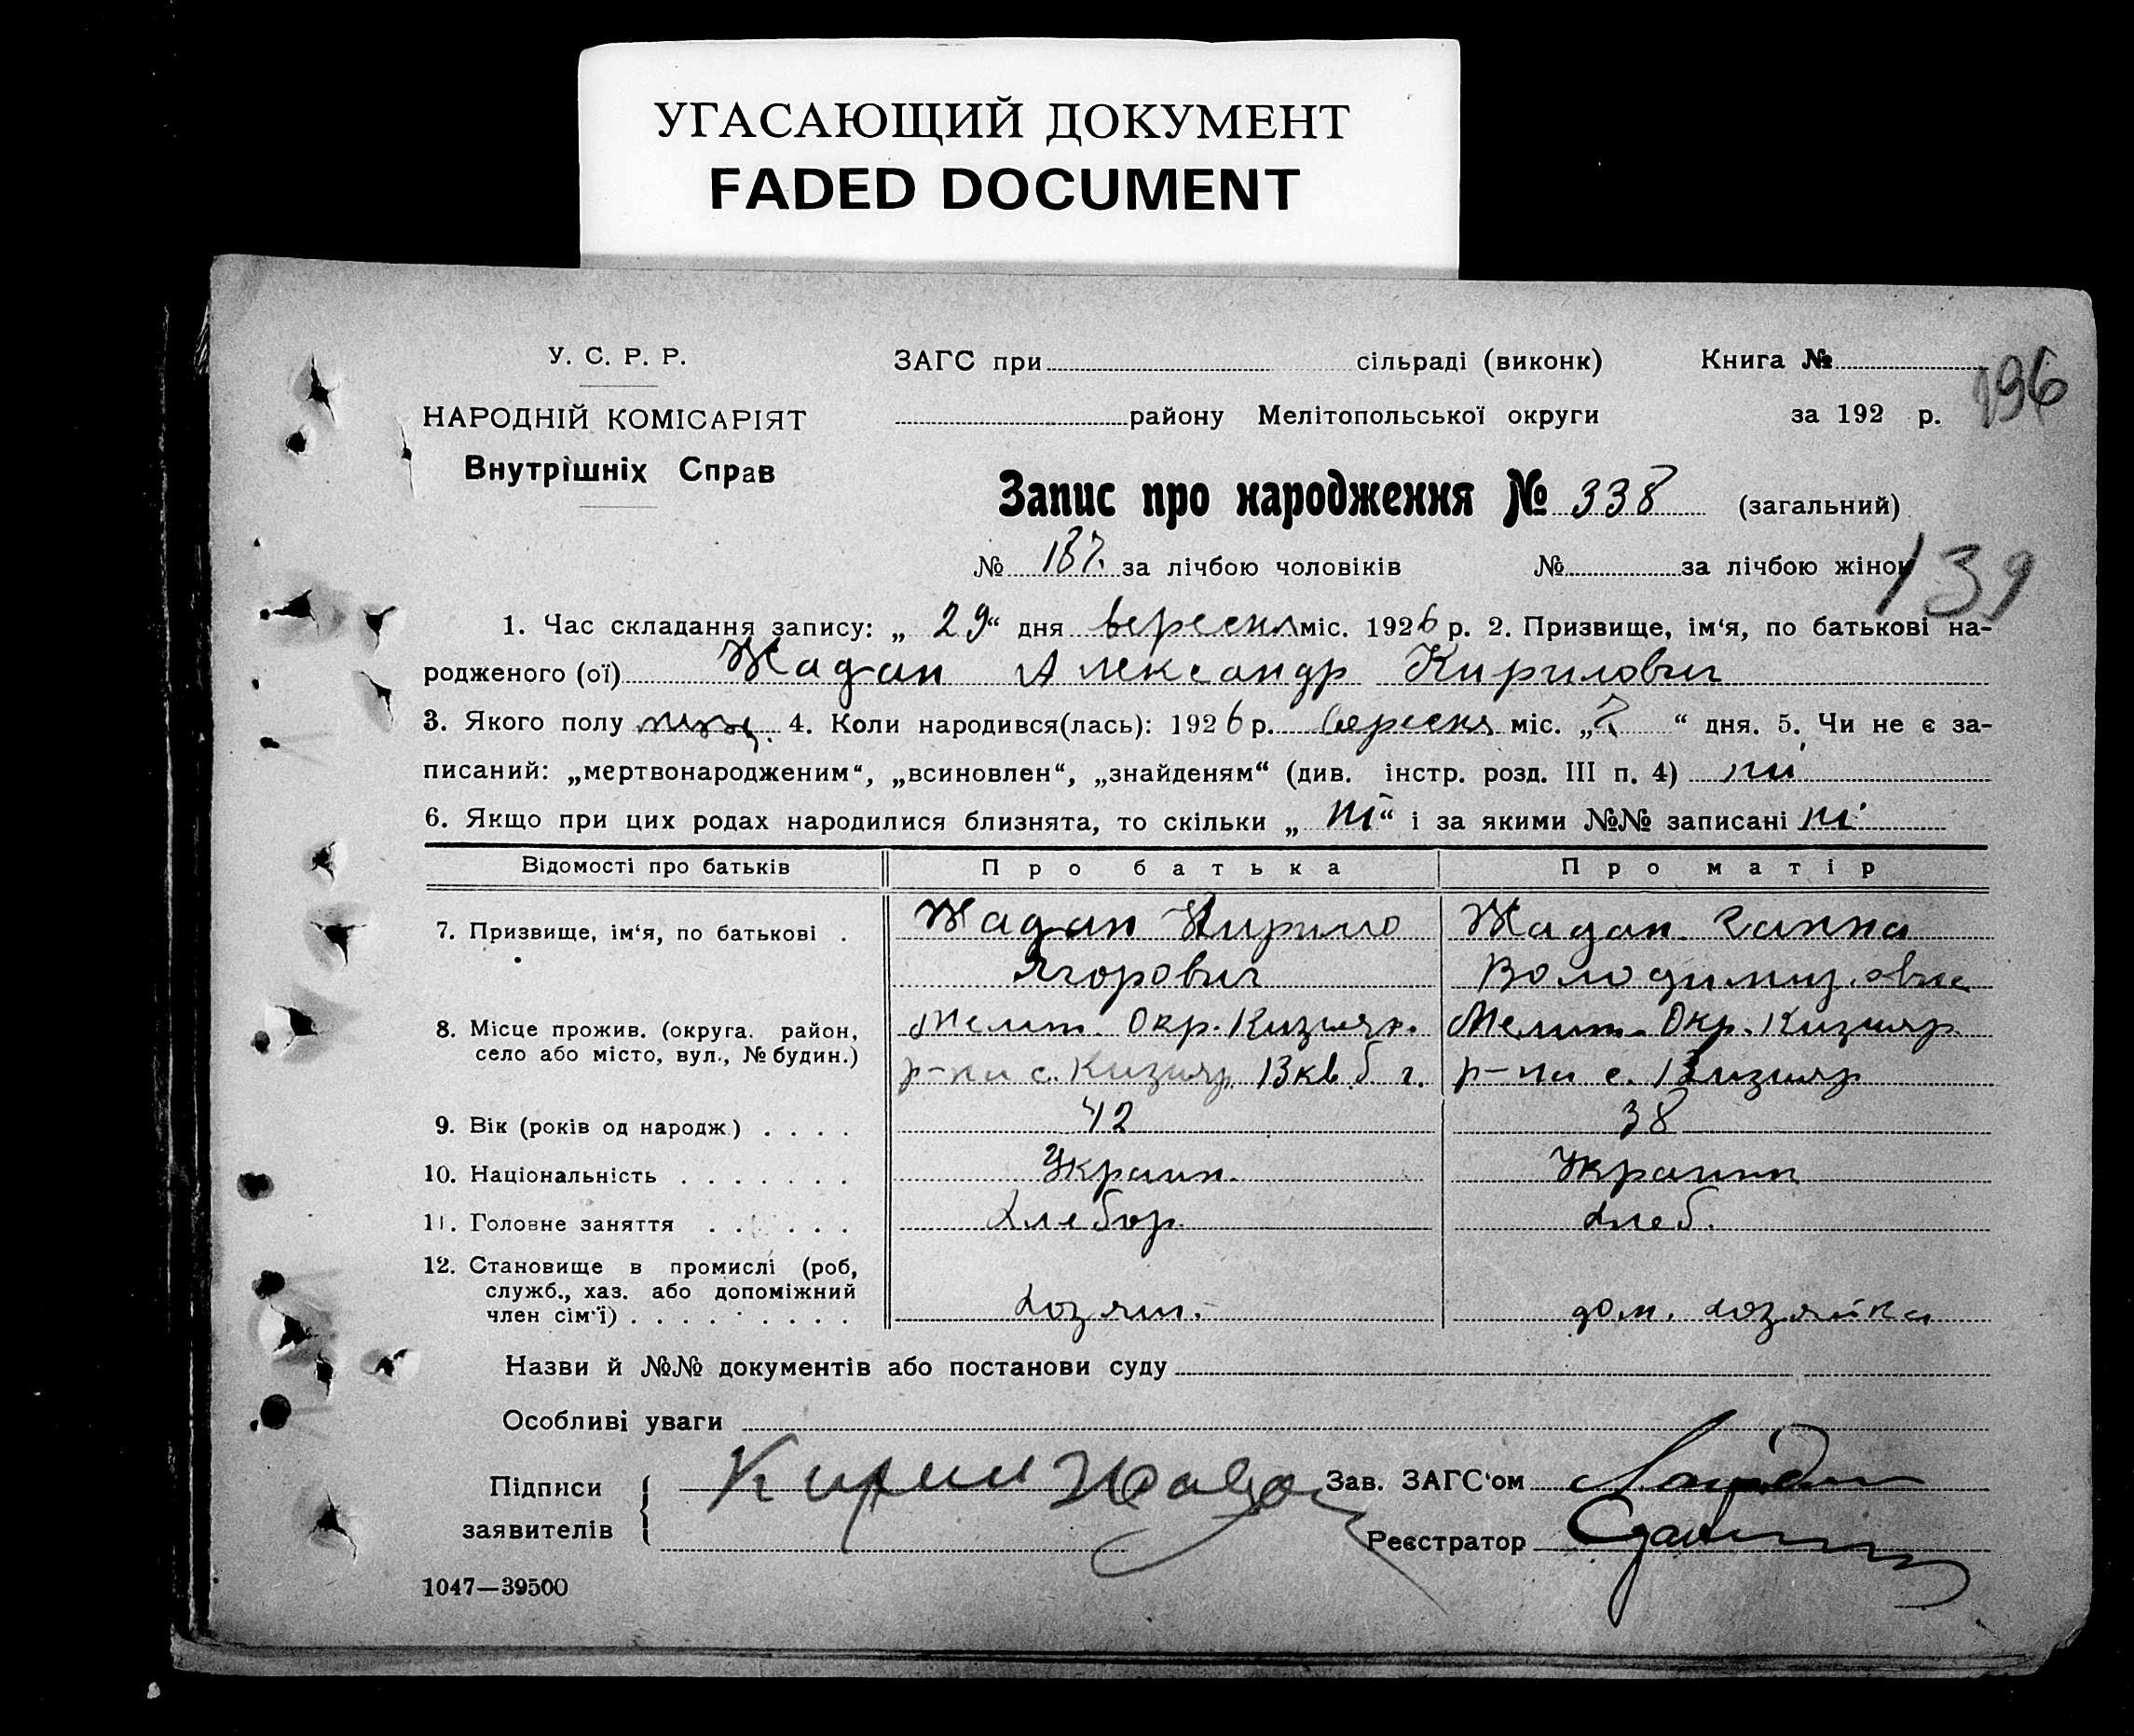 УГАСАЮЩИЙ ДОКУМЕНТ
FADED DOCUMENT
У. С. Р. Р.
НАРОДНІЙ КОМІСАРІЯТ
Внутрішніх Справ
ЗАГС при сільраді (виконк) Книга №
196
району Мелітопольської округи за 192 р.
Запис про народження № 338 (загальний)
№ 187. за лічбою чоловіків № за лічбою жінок
139
1. Час складання запису: „ 29 “ дня вересня міс. 1926 р. 2. Призвище, ім‘я, по батькові на-
родженого (ої) Жадан Александр Кирилович
3. Якого полу 4. Коли народився(лась): 1926 р. вересня міс. „ “ дня. 5. Чи не є за-
писаний: „мертвонародженим“, „всиновлен“, „знайденям“ (див. інстр. розд. III п. 4) ні
6. Якщо при цих родах народилися близнята, то скільки „ ні “ і за якими №№ записані ні
Відомості про батьків Про батька Про матір
7. Призвище, ім‘я, по батькові . Жадан Кирило Жадан Ганна
Ягорович Володимировна
8. Місце прожив. (округа. район, Мелит. Окр. Кизияр. Мелит. Окр. Кизияр
село або місто, вул., № будин.) р-на с. Кизияр 13 кв. 5 г. р-на с. Кизияр
9. Вік (років од народж.) . . . . 42 38
10. Національність . . . . . . . Украин. Украин
11. Головне заняття . . . . . . Хлебор. хлеб.
12. Становище в промислі (роб,
служб., хаз. або допоміжний
член сім‘ї) . . . . . . . . . хозяин. дом. хозяйка
Назви й №№ документів або постанови суду
Особливі уваги
Підписи
заявителів
Кирил Жадан
Зав. ЗАГС‘ом
Реєстратор
1047—39500